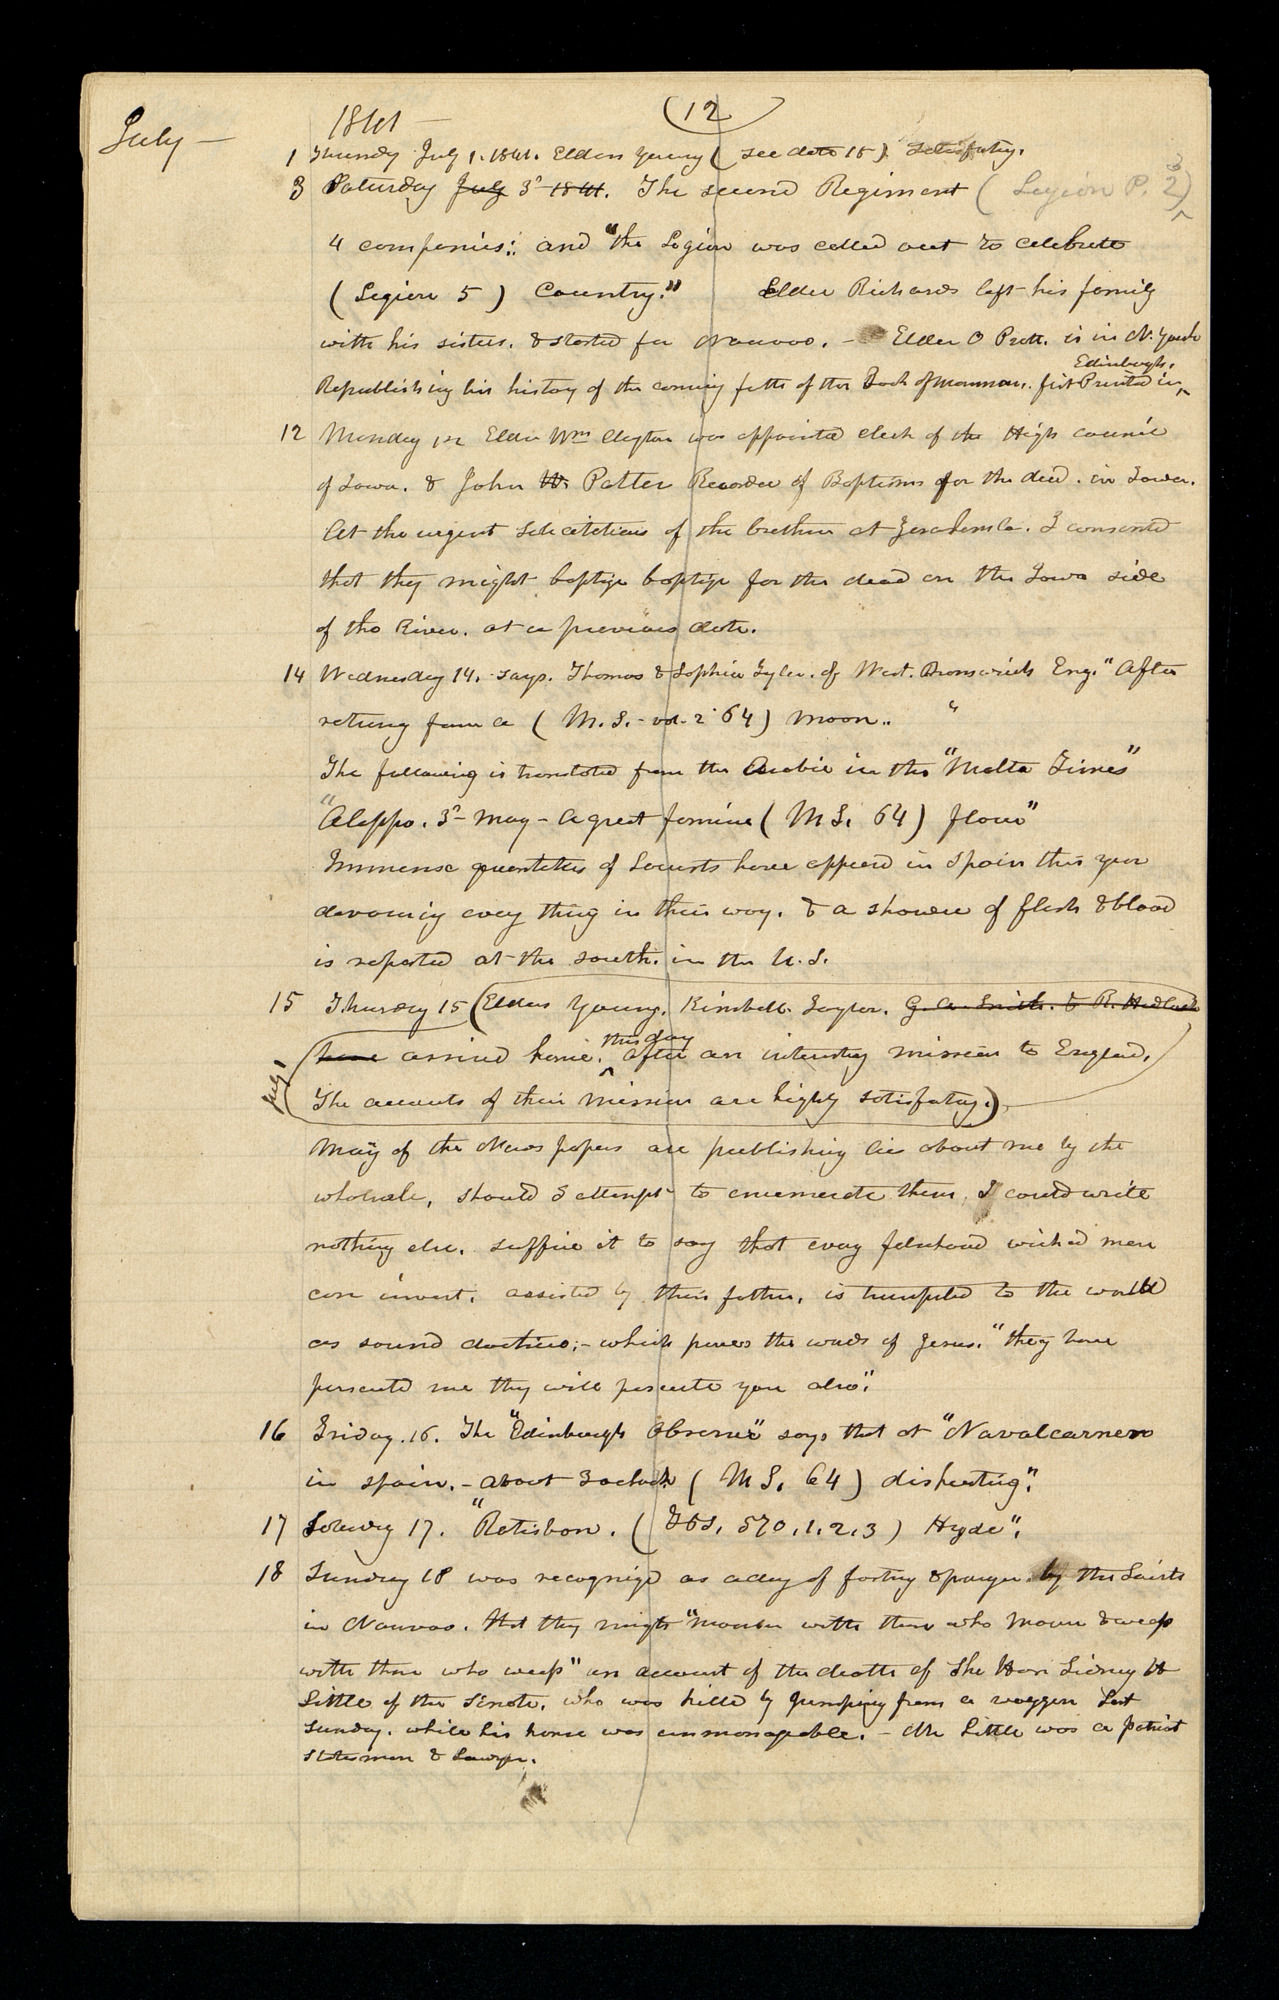 July —
1841 —
(12)
1 Thursdy July 1. 1841. Elders Young ( see date 15 ) satisfatry.
3 Saturday July 3d 1841. The second Regiment ( Legion P. 2 3 )
4 companies; and "the Legion was called out to celebrate
( Legion 5 ) Country." Elder Richards left his family
with his sisters. & started for Nauvoo. – Elder O Pratt. is in N. York
Republishing his history of the coming forth of the Book of Mormon. first Printed in
Edinburgh.
12 Monday 12 Elder Wm Clayton was appointed clerk of the High council
of Iowa. & John W. Patten Recorder of Baptisms for the dead. in Iowa.
At the urgent solicitations of the brethren at Zarahemla. I consented
that they might baptize baptize for the dead on the Iowa side
of the River. at a previous date.
14 Wednesday 14. says. Thomas & Sophia Tyler. of West. Bromwich Eng. "After
returng from a ( M.S. - vol. 2 64 ) moon.. "
The following is translated from the Arabic in the "Malta Times"
"Aleppo. 3d May – A great famine ( M S. 64 ) flour"
Immense quantities of Locusts have appeard in Spain this year
devouring evey thing in their way. & a shower of flesh & blood
is reported at the south. in the U.S.
15 Thursdy 15 ( Elders Young. Kimball. Taylor. G. A. Smith. & R. Hedlock
have arrived home. this day after an interestng mission to England.
July 1
The accounts of their mission are highly satisfatry. )
Many of the News papers are publishing lies about me by the
wholesale, should I attempt to enumerate them, I could write
nothing else. suffice it to say that evey falsehood wicked men
can invent. assisted by their father, is trumpeted to the world
as sound doctrine; – which proves the words of Jesus. "they have
persecuted me they will persecute you also".
16 Friday. 16. The "Edinburgh Observer" says that at "Navalcarnero
in spain. – about 3 oclock ( M S. 64 ) disputing".
17 Saturdy 17. "Ratisbon. ( T&S. 570, 1, 2, 3 ) Hyde".
18 Sunday 18 was recognized as a day of fasting & prayer. by the Saints
in Nauvoo. that they might "mourn with those who mourn & weep
with those who weep" on account of the death of The Hon Sidney H
Little of the Senate. who was killed by jumping from a waggon Last
Sunday. while his horse was unmanageable. – Mr Little was a patriot
statesman & Lawyer.